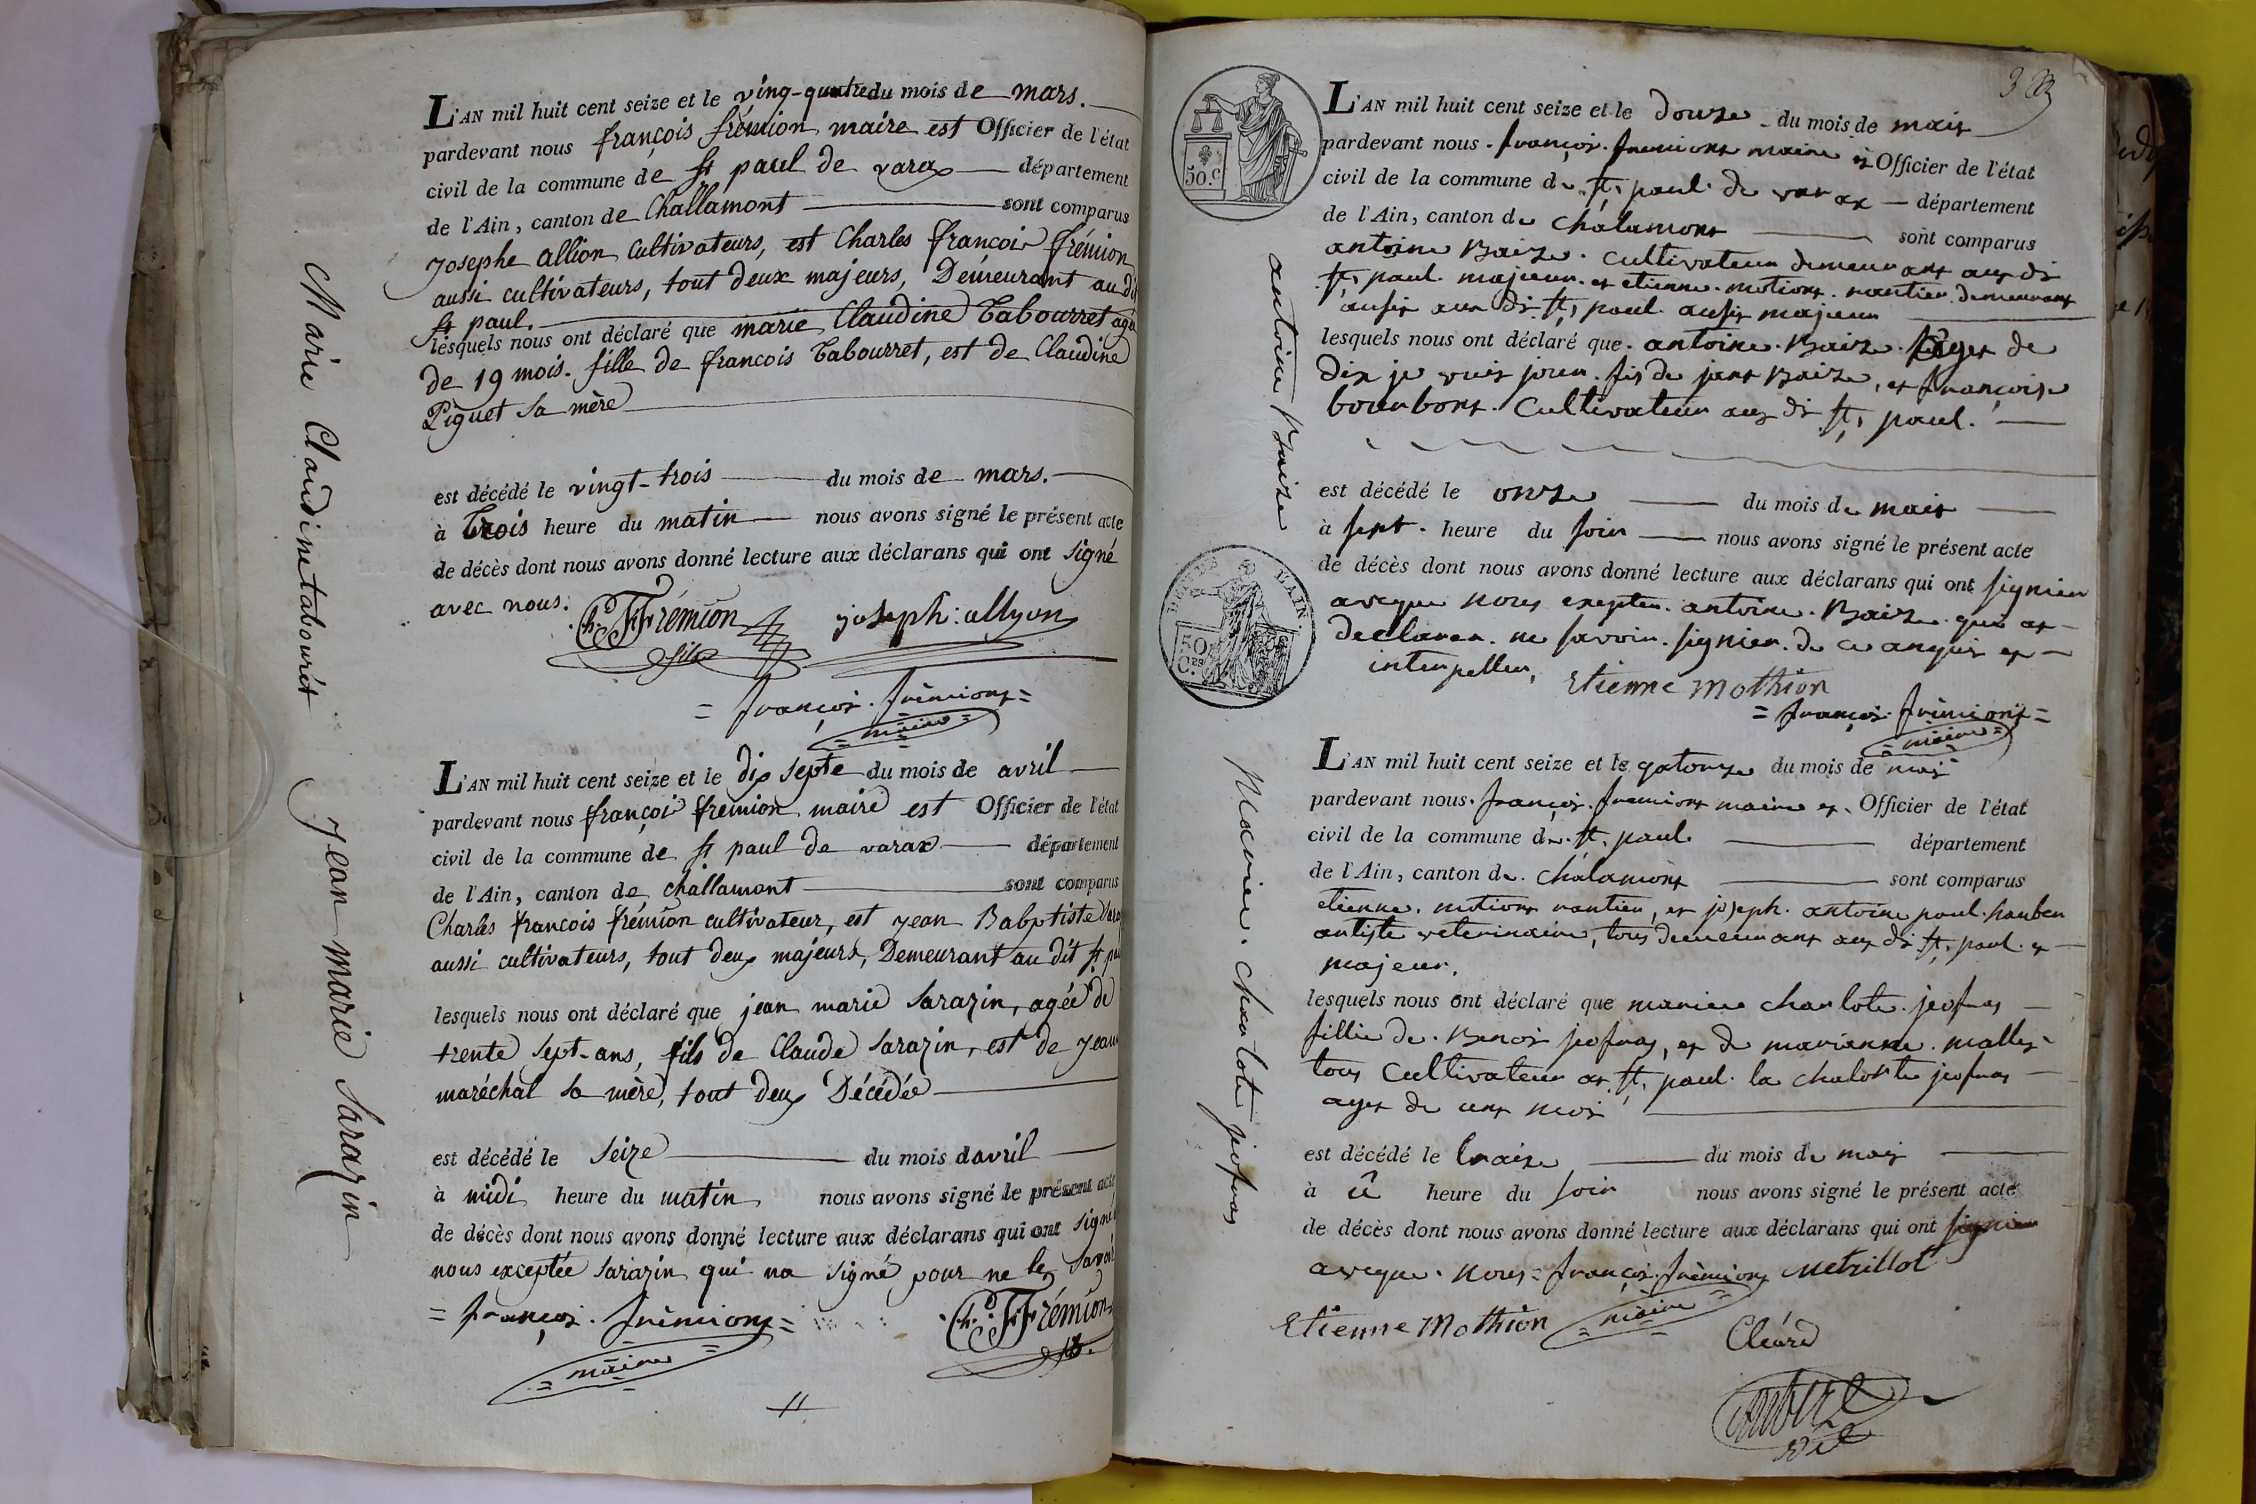 Marie Claudine tabourét
L'AN mil huit cent seize et le ving-quatre du mois de mars.
pardevant nous françois frémion maire est Officier de l'état
civil de la commune de St paul de varax département
de l'Ain, canton de Challamont sont comparus
Josephe allion cultivateurs, est Charles françois frémion
aussi cultivateurs, tout deux majeurs, Demeurant au dit
St paul.
lesquels nous ont déclaré que marie Claudine Tabourret agé
de 19 mois. fille de francois Tabourret, est de Claudine
Piguet sa mère
est décédé le vingt-trois du mois de mars.
à Trois heure du matin nous avons signé le présent acte
de décès dont nous avons donné lecture aux déclarans qui ont signé
avec nous.
Ch. F Frémion joseph: allyon
fils
= françois. frèmiont =
= maire =
Jean marie Sarazin
L'AN mil huit cent seize et le dix septe du mois de avril
pardevant nous françois fremion maire est Officier de l'état
civil de la commune de St paul de varax département
de l'Ain, canton de challamont sont comparus
Charles françois frémion cultivateur, est jean Babptiste
aussi cultivateurs, tout deux majeurs, Demeurant au dit St paul
lesquels nous ont déclaré que jean marie Sarazin, agée de
trente sept-ans, fils de Claude Sarazin, est de jeanne
maréchal sa mère, tout deux Décédée
est décédé le Seize du mois davril
à midi heure du matin nous avons signé le présent acte
de décès dont nous avons donné lecture aux déclarans qui ont signé
nous exceptée Sarazin qui na signé pour ne le savoir
= françois. frèmiont = Ch. F Frémion
= maire = fils
antoine Baize
50.C
L'AN mil huit cent seize et le douze du mois de mais
pardevant nous. françois. fremiont maire et Officier de l'état
civil de la commune de St, paul. de varax département
de l'Ain, canton de Chalamont sont comparus
antoine Baize. cultivateur demeurant aux di
St, paul. majeur. et etienne. motiont. rantier. demeurant
ausis aux di St, paul. ausis majeur
lesquels nous ont déclaré que. antoine. Baize. ager de
dix je vuis jour. fis de jant Baize, et françoise
bourbont. Cultivateur aux di St, paul.
est décédé le onze du mois de mais
à sept. heure du soir nous avons signé le présent acte
de décès dont nous avons donné lecture aux déclarans qui ont signier
aveque nous exepter. antoine. Baize. qui at
declarer. ne savoir. signier. de ce anquis et
interpeller,
50 C.es
Etienne Mothion
= françois. frèmiont =
= maire =
Marie. charlote jeofras
L'AN mil huit cent seize et le qatorze du mois de mai
pardevant nous. françois. frèmiont maire et. Officier de l'état
civil de la commune de. St. paul. département
de l'Ain, canton de. Chalamont sont comparus
etienne. motiont rantier, et joseph. antoine paul.
artiste veterinaire, tous demeurant aux di St, paul. et
majeur.
lesquels nous ont déclaré que mariee charlote. jeofras
fillie de. Benoi jeofras, et de marianne. malley
tous Cultivateur at St, paul. la chalotte jeofras
ager de unt moi
est décédé le traize du mois de mai
à û heure du soir nous avons signé le présent acte
de décès dont nous avons donné lecture aux déclarans qui ont signier
aveque. nous = françois. frèmiont metrillot
Etienne Mothion = maire =
Cléard